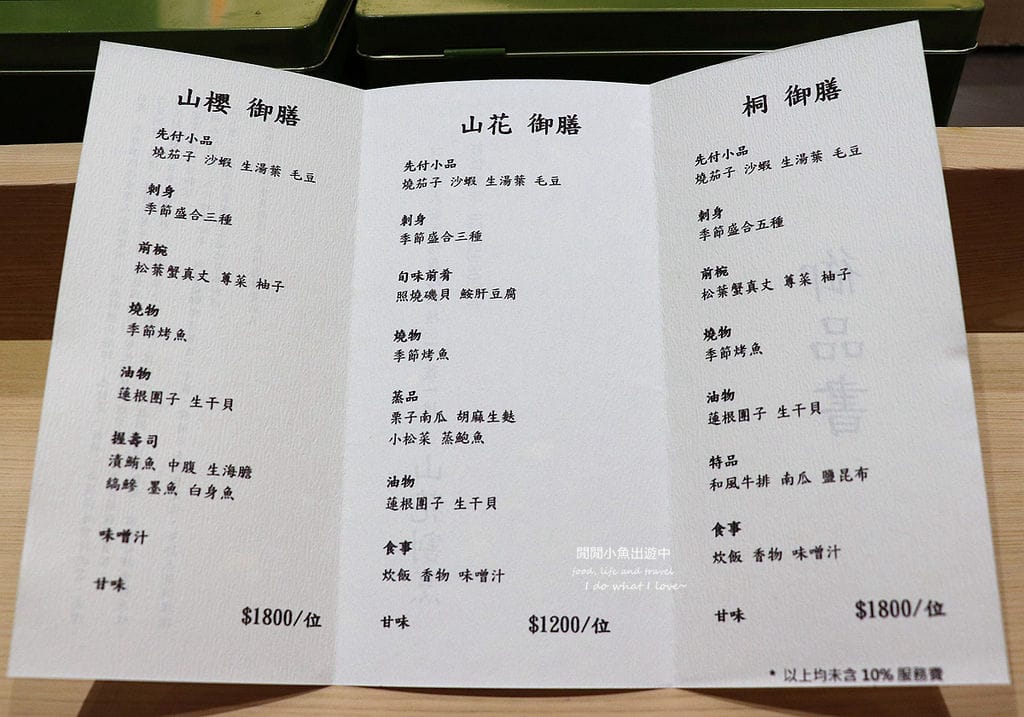 山櫻 御膳
先付小品
燒茄子 沙蝦 生湯葉 毛豆
刺身
季節盛合三種
前椀
松葉蟹真丈 蓴菜 柚子
燒物
季節烤魚
油物
蓮根團子 生干貝
握壽司
漬鮪魚 中腹 生海膽
縞鰺 墨魚 白身魚
味噌汁
甘味
$1800/位
山花 御膳
先付小品
燒茄子 沙蝦 生湯葉 毛豆
刺身
季節盛合三種
旬味前肴
照燒磯貝 鮟肝豆腐
燒物
季節烤魚
蒸品
栗子南瓜 胡麻生麩
小松菜 蒸鮑魚
油物
蓮根團子 生干貝
食事
炊飯 香物 味噌汁
甘味
$1200/位
桐 御膳
先付小品
燒茄子 沙蝦 生湯葉 毛豆
刺身
季節盛合五種
前椀
松葉蟹真丈 蓴菜 柚子
燒物
季節烤魚
油物
蓮根團子 生干貝
特品
和風牛排 南瓜 鹽昆布
食事
炊飯 香物 味噌汁
甘味
$1800/位
* 以上均未含 10% 服務費
閒閒小魚出遊中
food, life and travel
I do what I love~